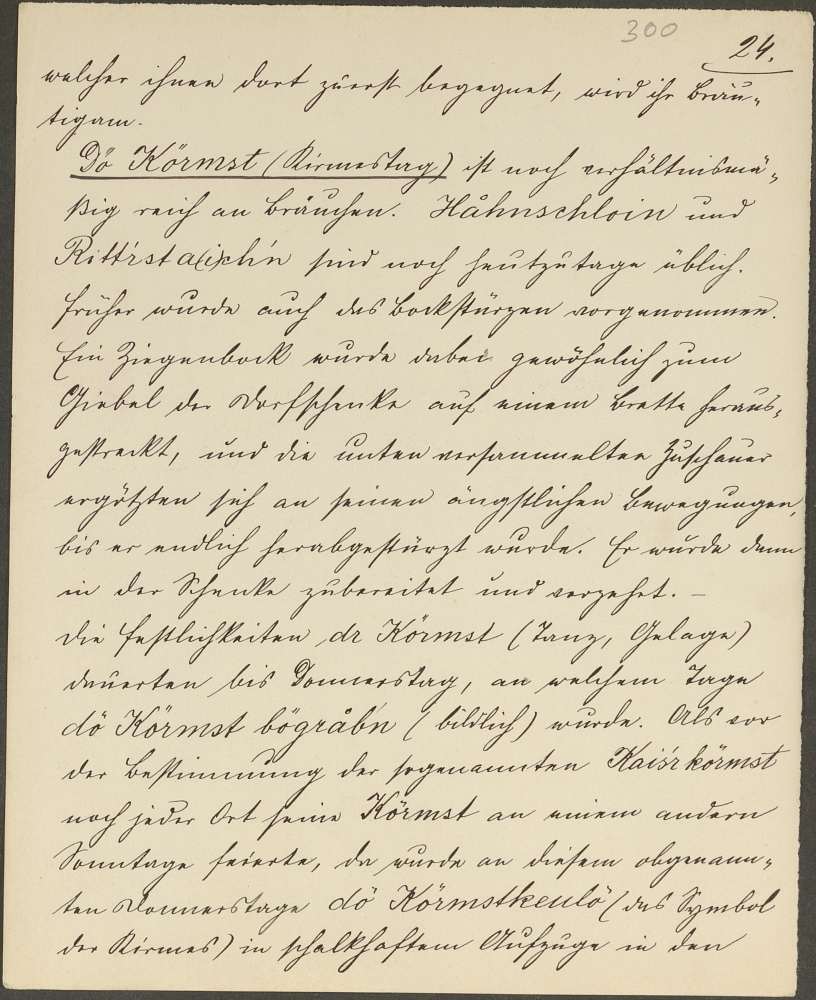 300
24.
welcher ihnen dort zuerst begegnet, wird ihr Bräu-
tigam.
Dö Körmst (Kirmestag) ist noch verhältnismä-
ßig reich an Bräuchen. Håhnschloin und
Rittŕsta(i)chń sind noch heutzutage üblich.
Früher wurde auch das Bockstürzen vorgenommen.
Ein Ziegenbock wurde dabei gewöhnlich zum
Giebel der Dorfschenke auf einem Brette heraus-
gestreckt, und die unten versammelten Zuschauer
ergötzten sich an seinen ängstlichen Bewegungen,
bis er endlich herabgestürzt wurde. Er wurde dann
in der Schenke zubereitet und verzehrt. –
Die Festlichkeiten dr Körmst (Tanz, Gelage)
dauerten bis Donnerstag, an welchem Tage
dö Körmst bögråbń (bildlich) wurde. Als vor
der Bestimmung der sogenannten Kaisŕkörmst
noch jeder Ort seine Körmst an einem andern
Sonntage feierte, da wurde an diesem obgenann-
ten Donnerstage dö Körmstkeulö (das Symbol
der Kirmes) in schalkhaftem Aufzuge in den